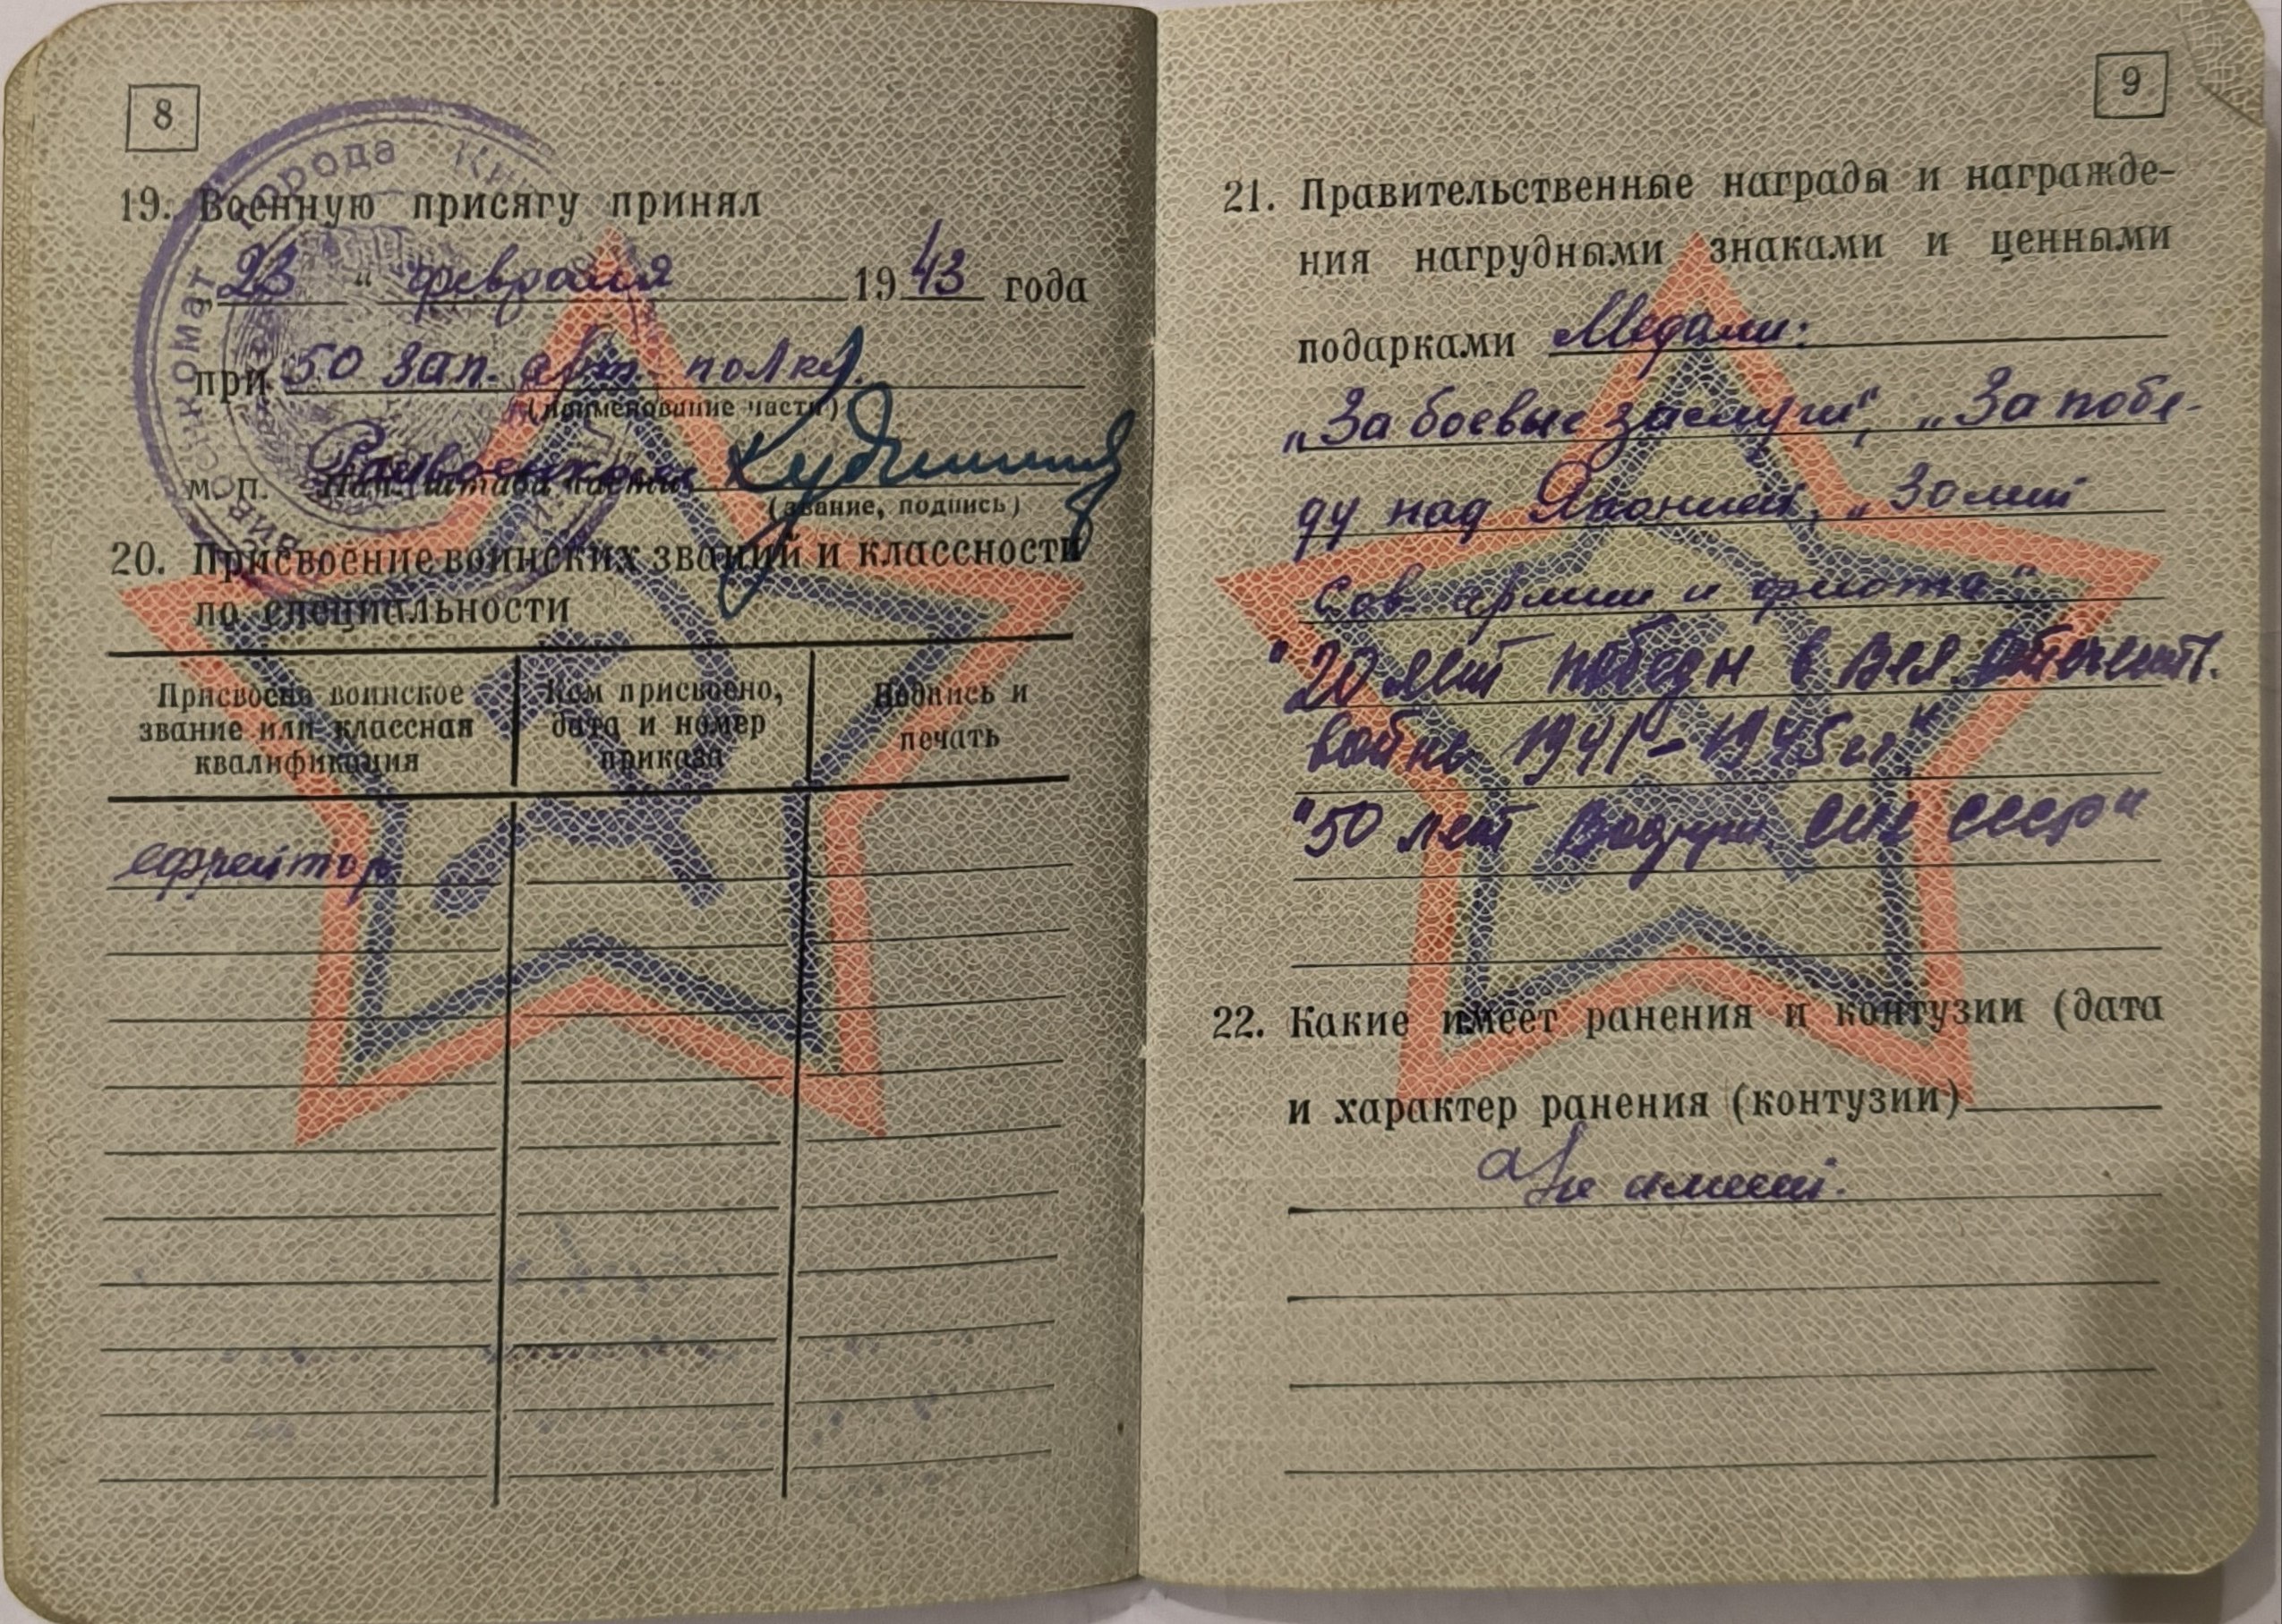 8
19. Военную присягу принял
„23“ февраля 1943 года
при 50 зап. арт. полку.
(наименование части)
Райвоенком
м. п. Нач. штаба части
(звание, подпись)
20. Присвоение воинских званий и классности
по специальности
Присвоено воинское звание или классная квалификация
Кем присвоено, дата и номер приказа
Подпись и печать
ефрейтор
города
9
21. Правительственные награды и награжде-
ния нагрудными знаками и ценными
подарками Медали:
„За боевые заслуги“, „За побе-
ду над Японией, „30 лет
Сов армии и флота“
"20 лет победы в Вел. Отечеств.
войне 1941-1945 гг"
"50 лет Вооруж. сил СССР"
22. Какие имеет ранения и контузии (дата
и характер ранения (контузии)
Не имеет.